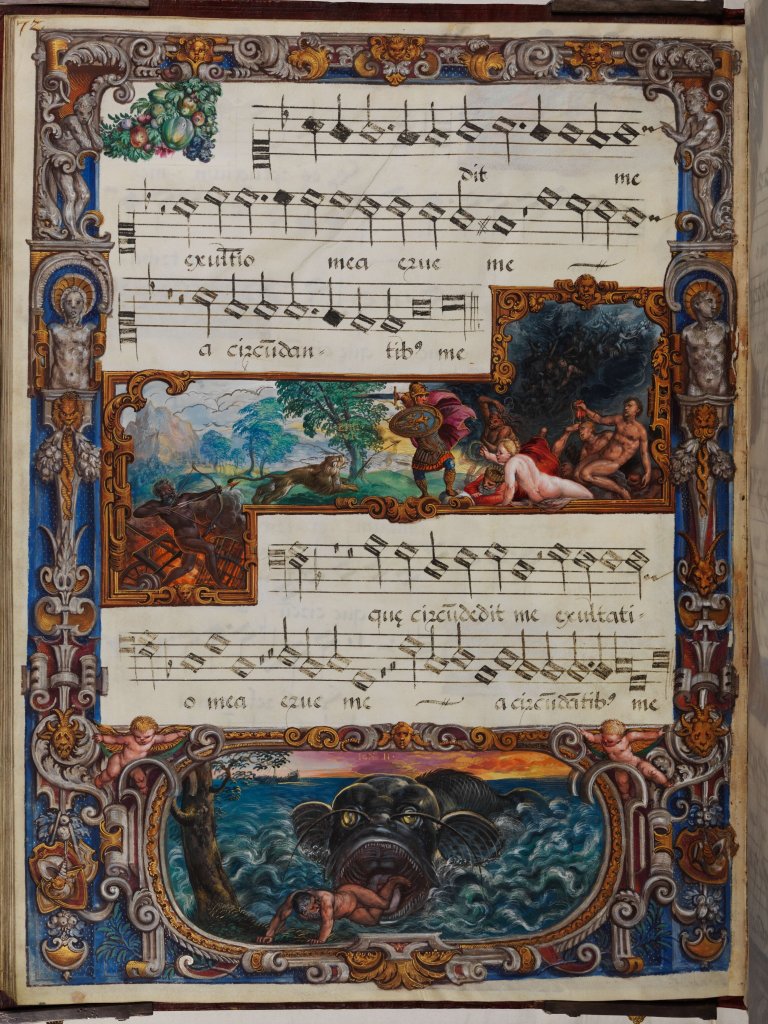 72
dit me
exult̄io mea erue me
a circūdan- tibꝯ me
quę circūdedit me exultati-
o mea erue me a circūdātibꝯ me